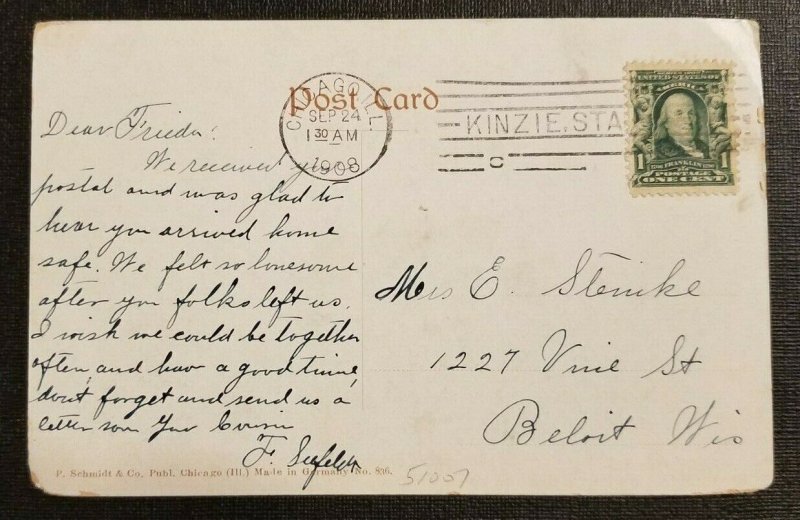 Post Card
CHICAGO ILL.
SEP 24
1 30 AM
1908
KINZIE. STA
C
SERIES 1902
UNITED STATES OF
AMERICA
1 FRANKLIN 1
POSTAGE
ONE CENT
Dear Frieda!
We received your
postal and was glad to
hear you arrived home
safe. We felt so lonesome
after you folks left us.
I wish we could be together
often, and hav a good time,
dont forget and send us a
letter soon Your Cousin
F. Seefeldt
Mrs E. Steinke
1227 Vine St
Beloit Wis
P. Schmidt & Co. Publ. Chicago (Ill.) Made in Germany No. 836.
51007